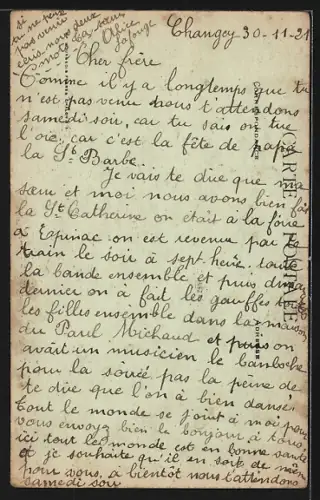 si
tu ne peux
pas venir
écris nous deux
mots. Ta sœur
Alice
Lafouge
Changey 30-11-21
Cher frère
Comme il y a longtemps que tu
n'est pas venu nous t'attendons
samedi soir, car tu sais on tue
l'oie, car c'est la fête de papa
la Ste Barbe.
Je vais te dire que ma
sœur et moi nous avons bien fait
la Ste Catherine on était à la foire
d'Epinac on est revenu par le
train le soir à sept heure toute
la bande ensemble et puis dimanche
dernier on à fait les gauffes tou
les filles ensemble dans la maison
du Paul Michaud et puis on
avait un musicien le
pour la soirée pas la peine de
te dire que l'on à bien dansé.
Tout le monde se joint à moi pour
vous envoyé bien le bonjour à tous
ici tout le monde est en bonne santé
et je souhaite qu'il en soit de même
pour vous, à bientôt nous t'attendons
samedi soir
CARTE POSTALE
CORRESPONDANCE
ADRESSE